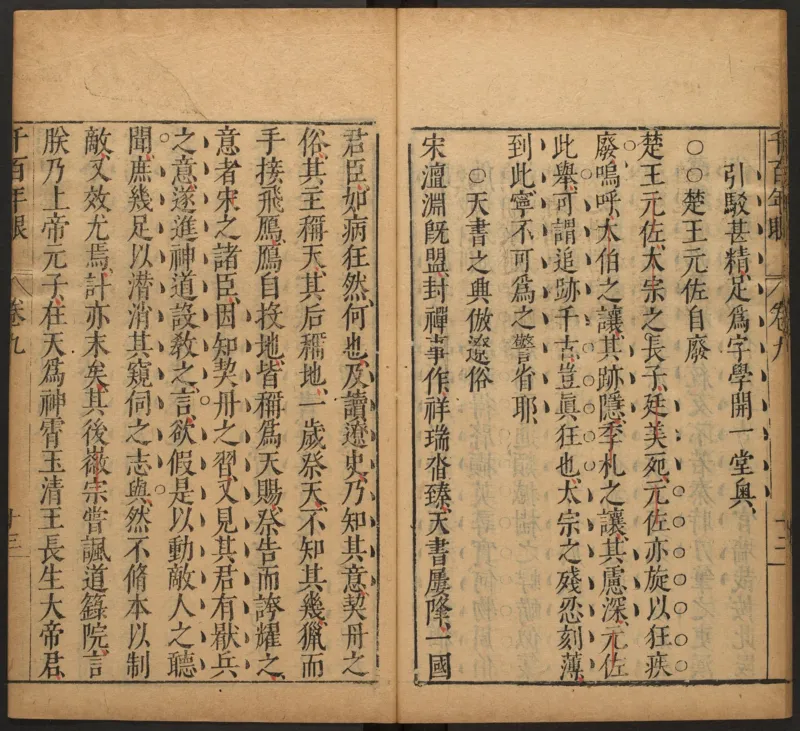 千百年眼 卷九 十二
引駁甚精足爲字學開一堂奧
○楚王元佐自廢
楚王元佐太宗之長子廷美死元佐亦旋以狂疾
廢嗚呼大伯之讓其跡隱季札之讓其慮深元佐
此舉可謂追跡千古豈眞狂也太宗之殘忍刻薄
到此寧不可爲之警省耶
○天書之典倣遼俗
宋澶淵旣盟封禪事作祥瑞沓臻天書屢降一國
君臣如病狂然何也及讀遼史乃知其意契丹之
俗其主稱天其后稱地一歲祭天不知其幾獵而
手接飛鴈鴈自投地皆稱爲天賜祭告而誇耀之
意者宋之諸臣因知契丹之習又見其君有厭兵
之意遂進神道設敎之言欲假是以動敵人之聽
聞庶幾足以潛消其窺伺之志與然不脩本以制
敵又效尤焉計亦末矣其後徽宗嘗諷道籙院言
朕乃上帝元子在天爲神霄玉清王長生大帝君
千百年眼 卷九 十三